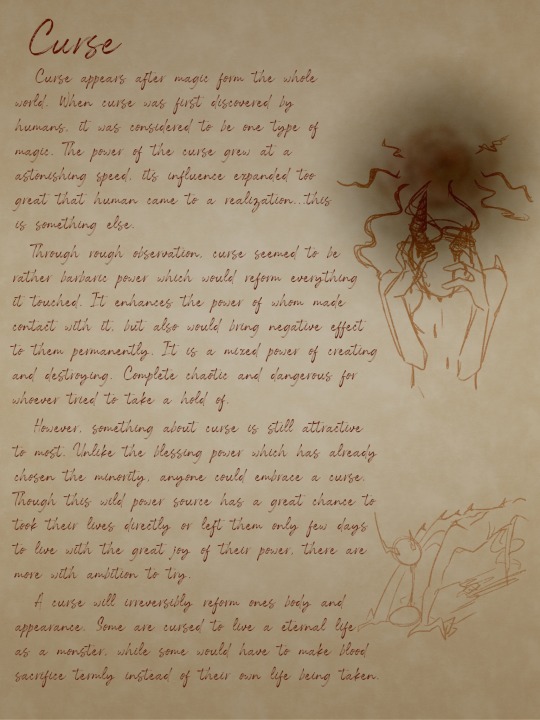 Curse
Curse appears after magic form the whole
world. When curse was first discovered by
humans, it was considered to be one type of
magic. The power of the curse grew at a
astonishing speed, its influence expanded too
great that human came to a realization...this
is something else.
Through rough observation, curse seemed to be
rather barbaric power which would reform everything
it touched. It enhances the power of whom made
contact with it, but also would bring negative effect
to them permanently. It is a mixed power of creating
and destroying. Complete chaotic and dangerous for
whoever tried to take a hold of.
However, something about curse is still attractive
to most. Unlike the blessing power which has already
chosen the minority, anyone could embrace a curse.
Though this wild power source has a great chance to
took their lives directly or left them only few days
to live with the great joy of their power, there are
more with ambition to try.
A curse will irreversibly reform ones body and
appearance. Some are cursed to live a eternal life
as a monster, while some would have to make blood
sacrifice termly instead of their own life being taken.